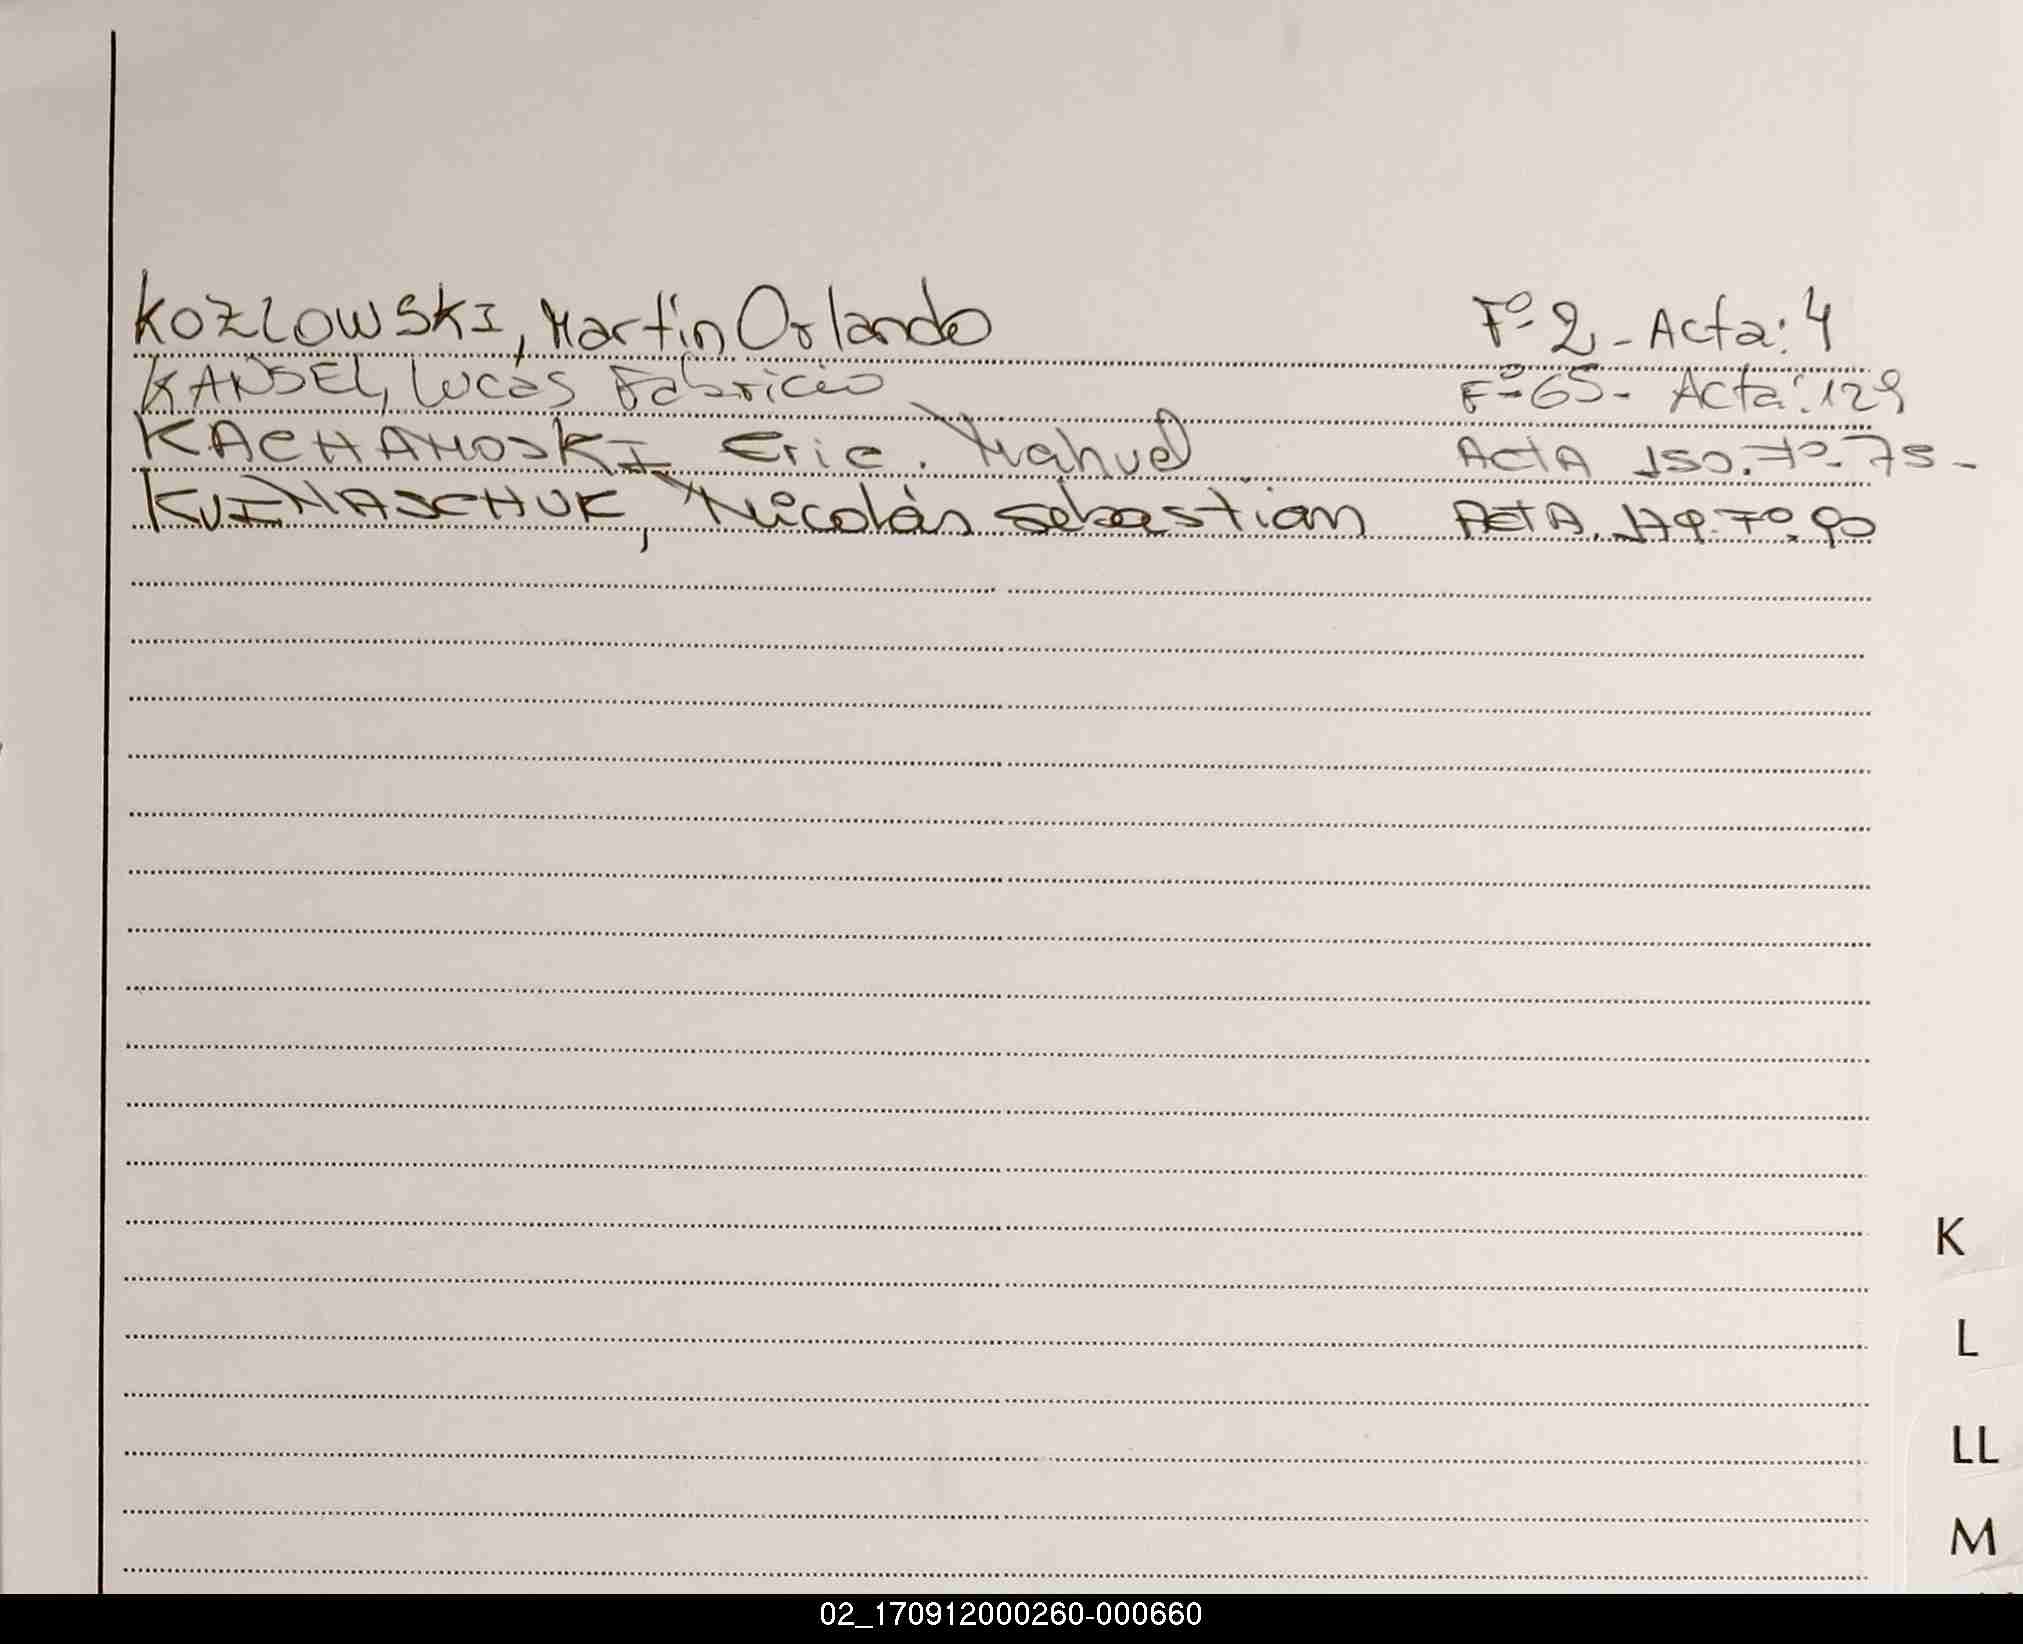 KOZLOWSKI, Martín Orlando F° 2 - Acta: 4
KANSEL, Lucas Fabricio F° 65 - Acta: 129
KACHANOSKI Eric. Nahuel ACTA 150. F° 75 -
KUINASCHUK, Nicolás sebastian ACTA. 179. F°. 90
K
L
LL
M
02_170912000260-000660